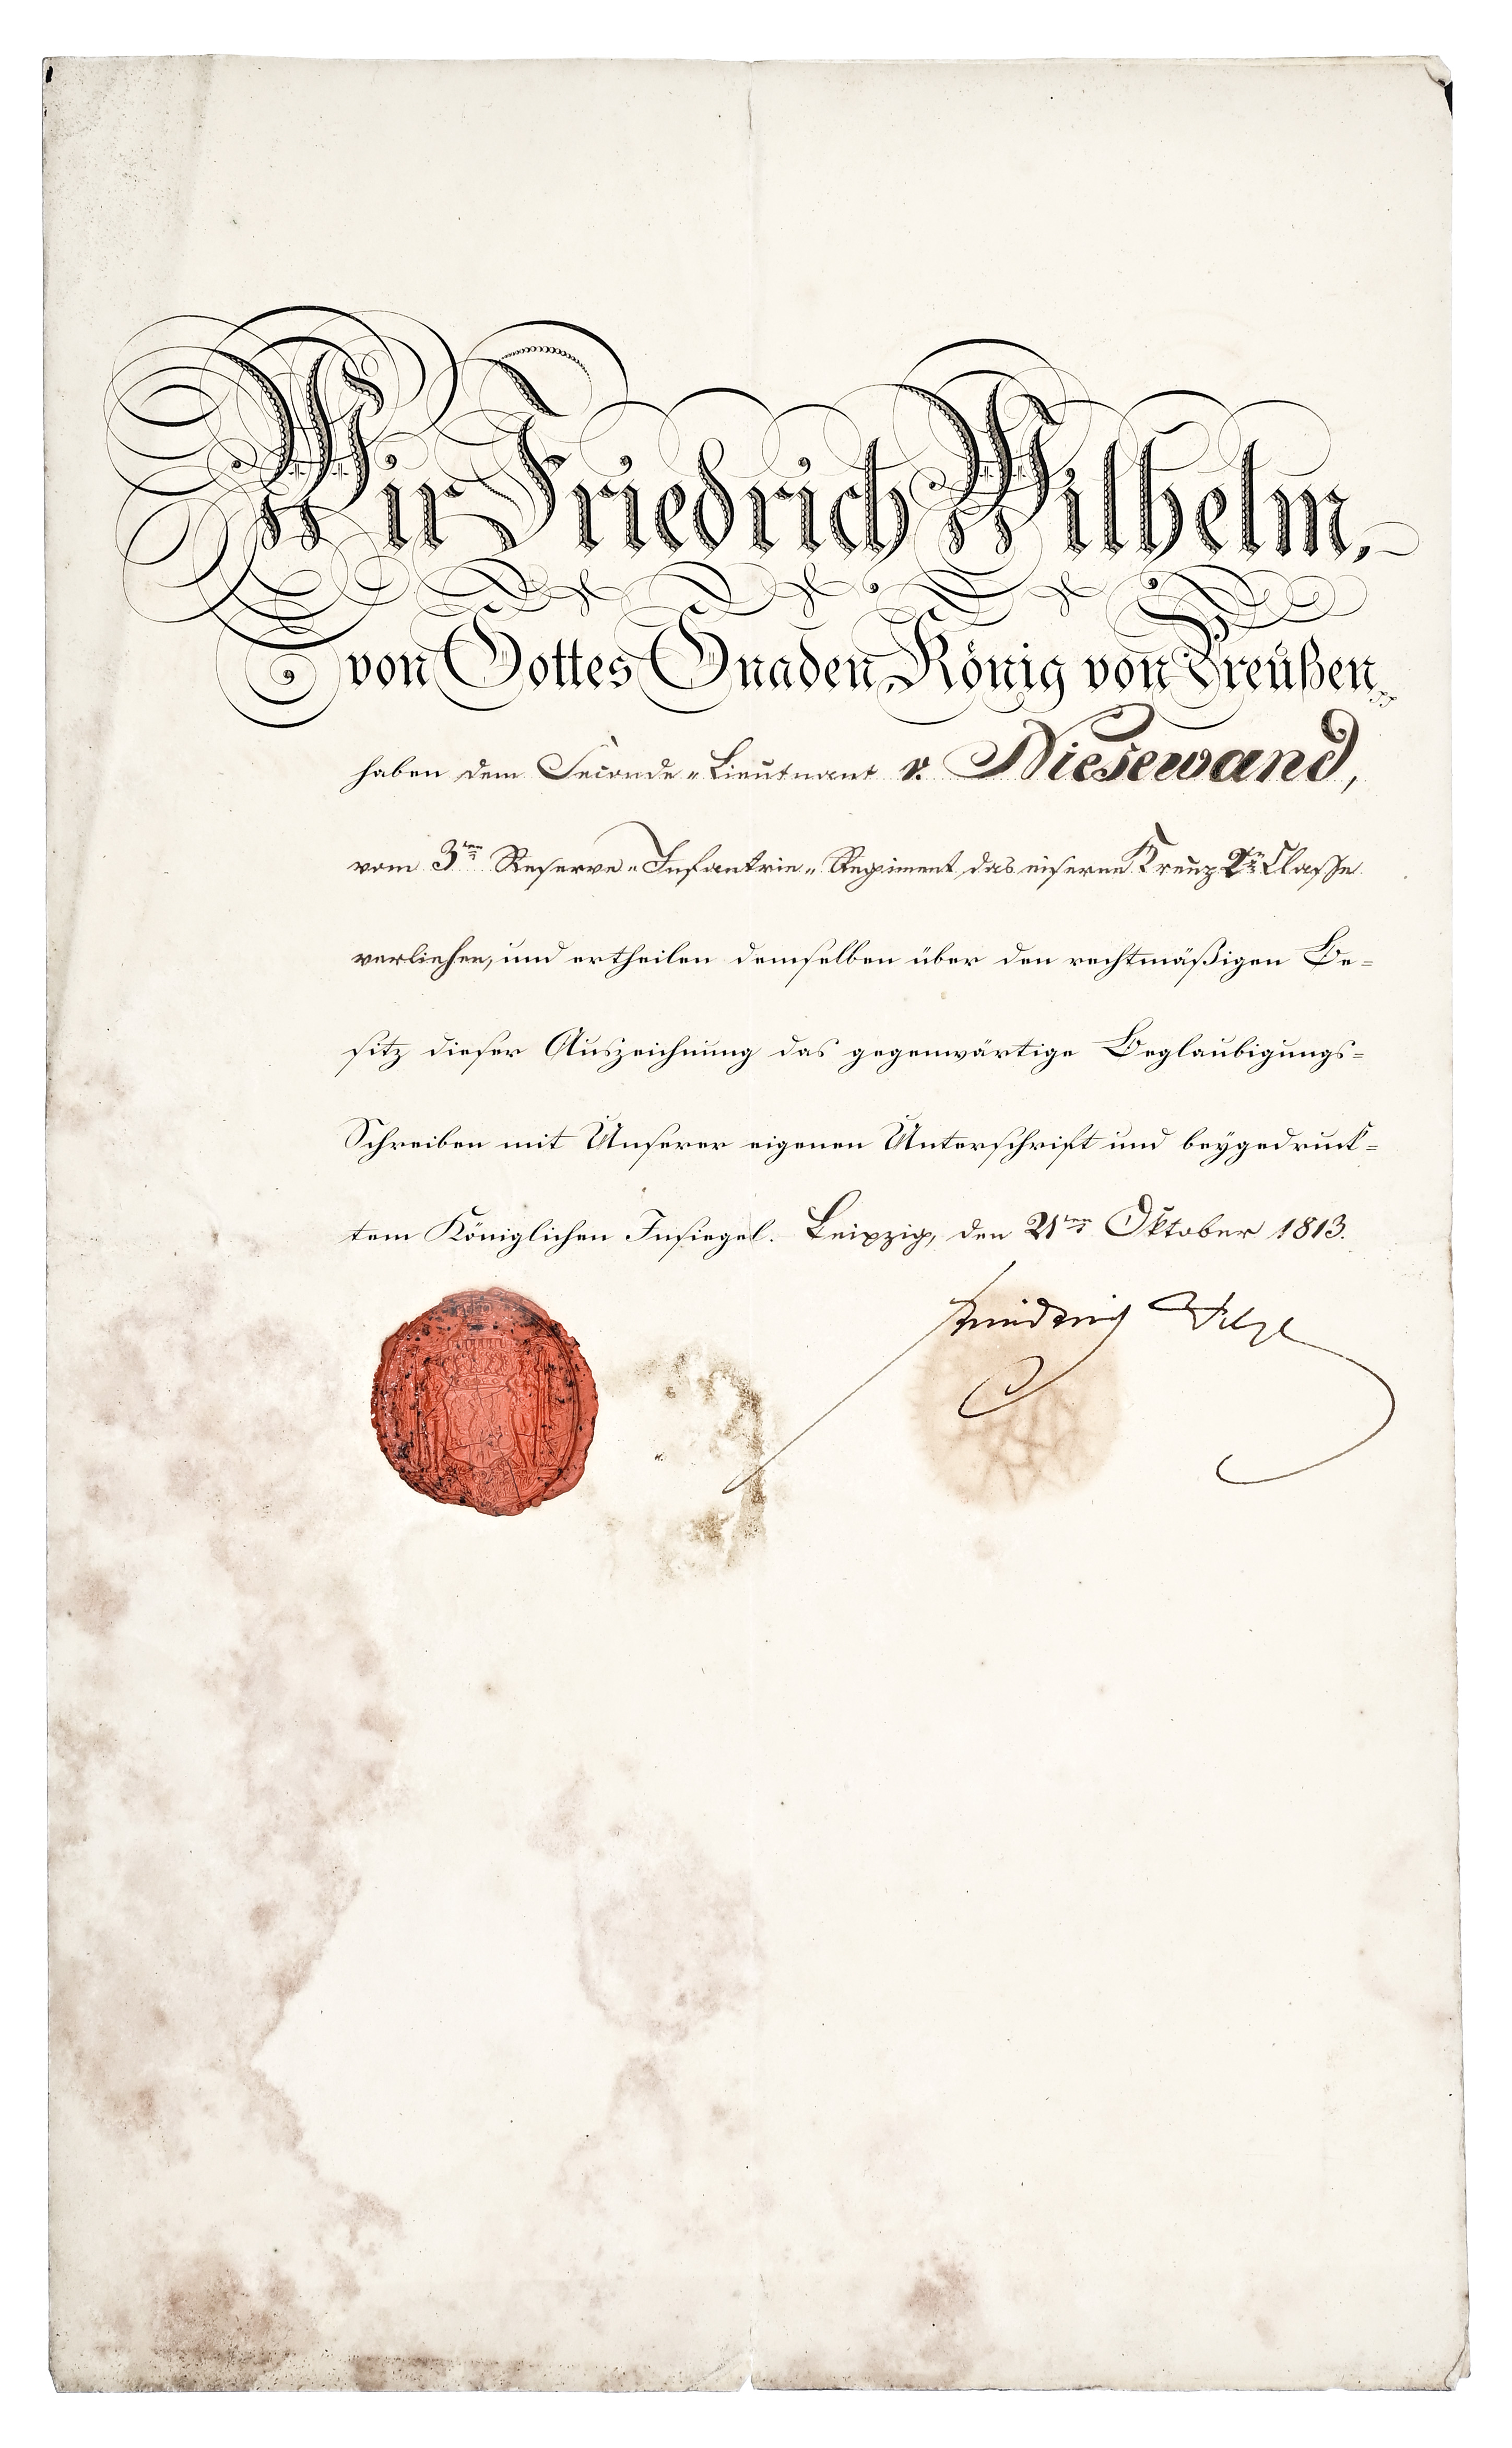 Wir Friedrich Wilhelm,
von Gottes Gnaden König von Preußen
haben dem Seconde-Lieutnant v. Niesewand,
vom 3ten Reserve-Infantrie-Regiment das eiserne Kreuz 2r Classe
verliehen, und ertheilen demselben über den rechtmäßigen Be=
sitz dieser Auszeichnung das gegenwärtige Beglaubigungs=
Schreiben mit Unserer eigenen Unterschrift und beygedruck=
tem Königlichen Insiegel. Leipzig, den 21ten Oktober 1813.
Friedrich Wilh